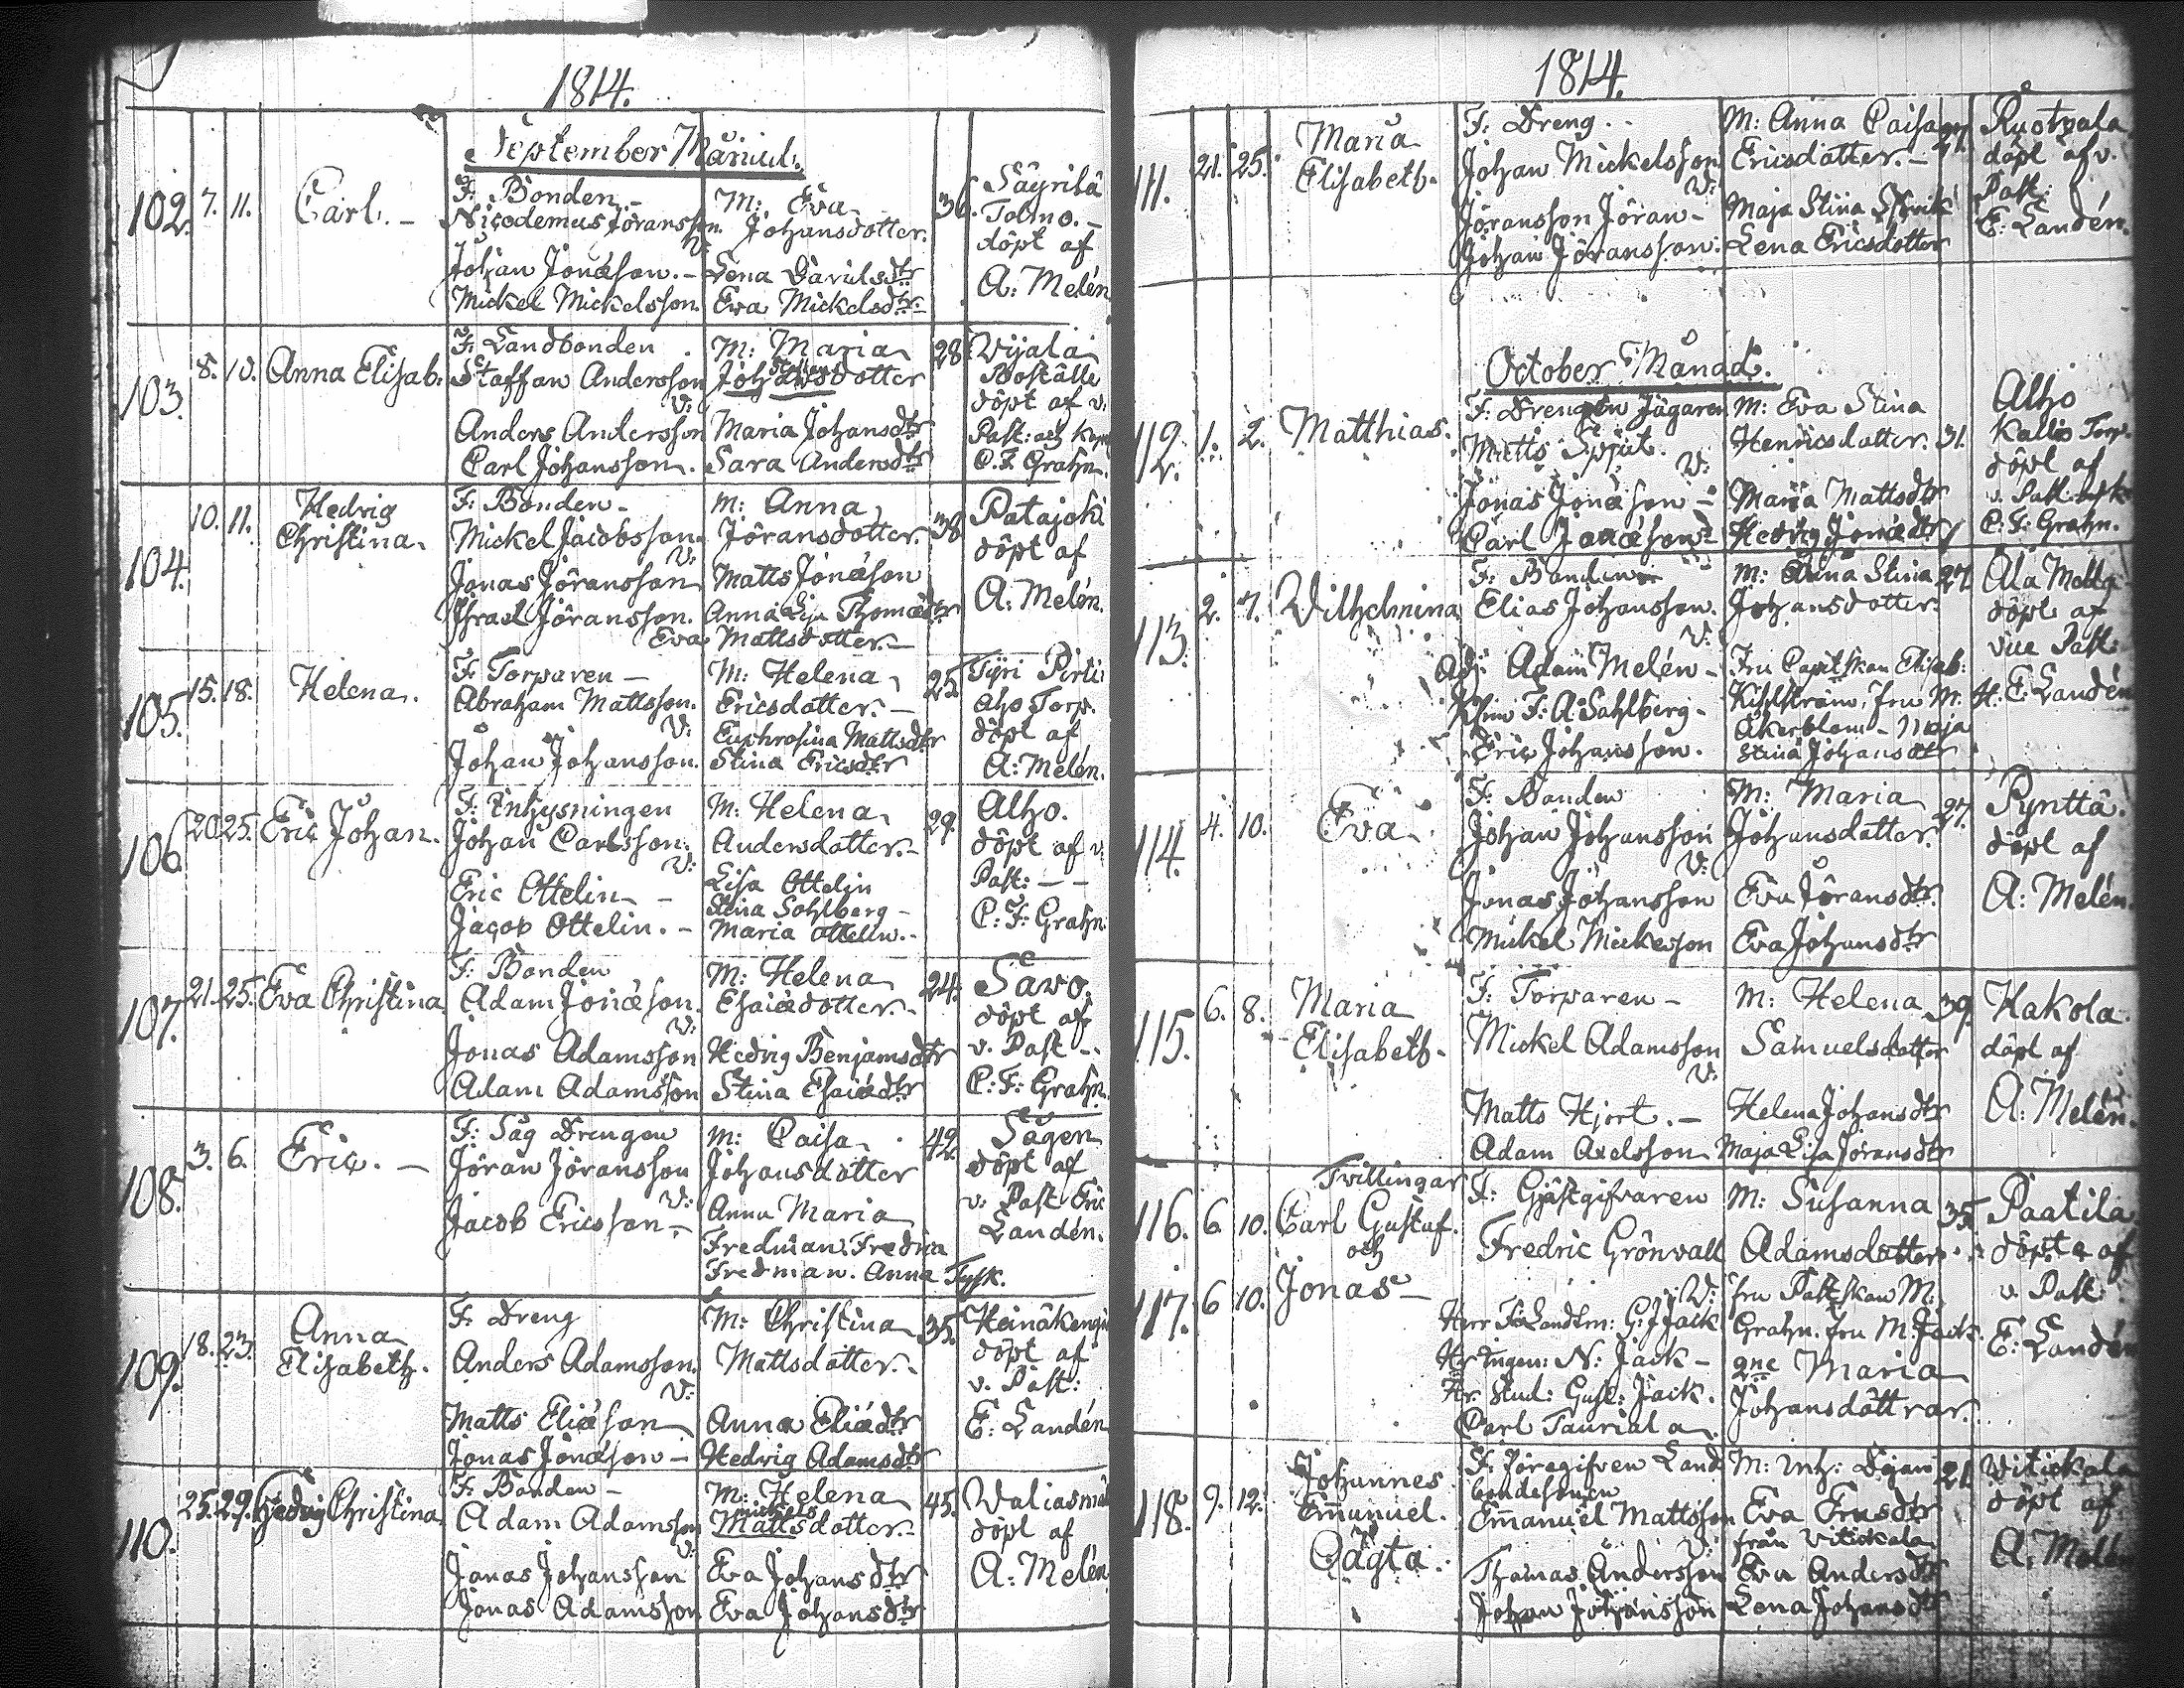 1814.
September Månad.
102. 7. 11. Carl. –
F: Bonden. –
Nicodemus Jöransson.
V:
Johan Jonæson. –
Mickel Mickelsson.
M: Eva
Johansdotter.
Lena Davidsdtr
Eva Mickelsdtr
36.
Säyrilä
Tolmo. –
döpt af
A: Melén
103. 8. 10. Anna Elisab:
F: Landbonden
Staffan Andersson
V:
Anders Andersson
Carl Johansson.
M: Maria
Johansdotter
Maria Johansdtr
Sara Andersdtr
28
Wijala
Boställe
döpt af v:
Past: och
C. F. Grahn.
104. 10. 11. Hedvig
Christina.
F: Bonden. –
Mickel Jacobsson.
V:
Jonas Jöransson
Israel Jöransson.
M: Anna
Jöransdotter.
Matts Jonæson
Anna Lisa Thomædtr
Eva Mattsdotter. –
38
Patajoki
döpt af
A: Melén.
105. 15. 18. Helena.
F: Torparen –
Abraham Mattsson.
V:
Johan Johansson.
M: Helena
Ericsdotter. –
Euphrosina Mattsdtr
Stina Ericsdtr
25
Tyri Pirti
aho Torp.
döpt af
A: Melén.
106. 20. 25. Eric Johan.
F: Inhysningen
Johan Carlsson.
V:
Eric Ottelin –
Jacob Ottelin. –
M: Helena
Andersdotter. –
Lisa Ottelin
Stina Sohlberg –
Maria Ottelin. –
29.
Alho.
döpt af v:
Past: – –
C: F: Grahn.
107. 21. 25. Eva Christina
F: Bonden
Adam Jonæson.
V:
Jonas Adamsson
Adam Adamsson
M: Helena
Esaiædotter. –
Hedvig Benjamsdtr
Stina Esaiædtr
24.
Savo.
döpt af
v. Past –
C: F: Grahn.
108. 3. 6. Eric. –
F: Såg Drengen
Jöran Jöransson
V:
Jacob Ericsson –
M: Caisa
Johansdotter
Anna Maria
Fredman. Fredrica
Fredman. Anna Tysk.
42.
Sågen
döpt af
v: Past Eric
Landén.
109. 18. 23. Anna
Elisabeth.
F: Dreng
Anders Adamsson.
V:
Matts Eliæson
Jonas Jonæson –
M: Christina
Mattsdotter. –
Anna Eliædtr
Hedvig Adamsdtr
35.
döpt af
v. Past:
E: Landén
110. 25. 29. Hedvig Christina.
F: Bonden –
Adam Adamsson
V:
Jonas Johansson
Jonas Adamsson
M: Helena
Mattsdotter. –
Eva Johansdtr
Eva Johansdtr
45.
döpt af
A: Melén
1814.
111. 21. 25. Maria
Elisabeth.
F: Dreng
Johan Mickelsson
V:
Jöransson Jöran –
Johan Jöransson.
M: Anna Caisa
Ericsdotter. –
Maja Stina
Lena Ericsdotter
Ruotzala
döpt af v.
Past:
E: Landén.
October Månad.
112. 1. 2. Matthias.
F: Drengen Jägaren
Matts Spjut.
V:
Jonas Jonæson –
Carl Jonæson –
M: Eva Stina
Henricsdotter.
Maria Mattsdtr
Hedvig Jonædtr
31.
Alho
Kallio Torp.
döpt af
v. Past
C: F: Grahn.
113. 2. 7. Vilhelmina
F: Bonden
Elias Johansson.
V:
Adj: Adam Melén –
F: A: Sahlberg –
Eric Johansson.
M: Anna Stina
Johansdotter.
Fru Elisab:
Kihlström, Fru M:
Åkerblom – Maja
Stina Johansdtr
27
Ala Mella
döpt af
vice Past:
E. Landén
114. 4. 10. Eva
F: Bonden
Johan Johansson
V:
Jonas Johansson
Mickel Mickesson
M: Maria
Johansdotter.
Eva Jöransdtr.
Eva Johansdtr
27.
Pynttä.
döpt af
A: Melén.
115. 6. 8. Maria
Elisabeth.
F: Torparen –
Mickel Adamsson
V:
Matts Hjort. –
Adam Axelsson
M: Helena
Samuelsdotter
Helena Johansdtr
Maja Lisa Jöransdtr
39.
Kakola.
döpt af
A: Melén.
Tvillingar
116. 6. 10. Carl Gustaf.
och
117. 6. 10. Jonas –
F: Gjästgifvaren
Fredric Grönvall
V:
Herr F: Landtm: G: J Jack
Hr Ingen: N: Jack –
Hr. Stud: Gust: Jack.
Carl Tauriala
M: Susanna
Adamsdotter.
fru Past skan M:
Grahn. fru M. Jack.
2ne Maria
Johansdöttrar.
35.
Paatila
döpte af
v. Past
E: Landén
118. 9. 12. Johannes
Emanuel.
Oägta.
F: Föregifven Land
bondesonen
Emanuel Mattsson
V:
Thomas Andersson
Johan Johansson
M: Inh: Pigan
Eva
från Vitickala
Eva Andersdtr
Lena Johansdtr
21.
Vitickala
döpt af
A: Melén